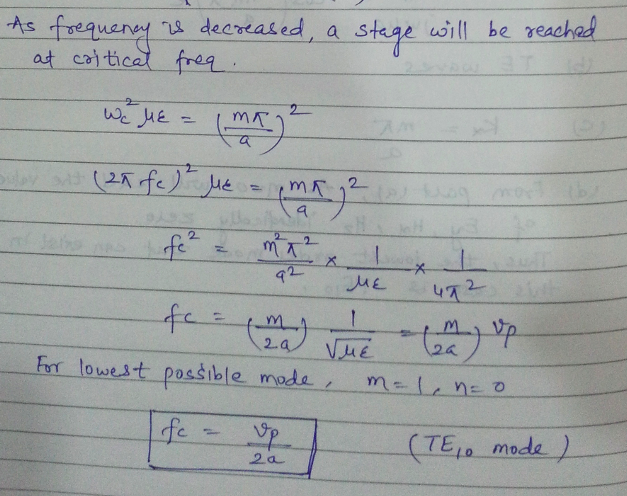 As frequency is decreased, a stage will be reached
at critical freq.
ωc² με = (mπ/a)²
(2π fc)² με = (mπ/a)²
fc² = m²π²/a² × 1/με × 1/4π²
fc = (m/2a) 1/√με = (m/2a) vp
For lowest possible mode, m=1, n=0
fc = vp/2a (TE₁₀ mode)